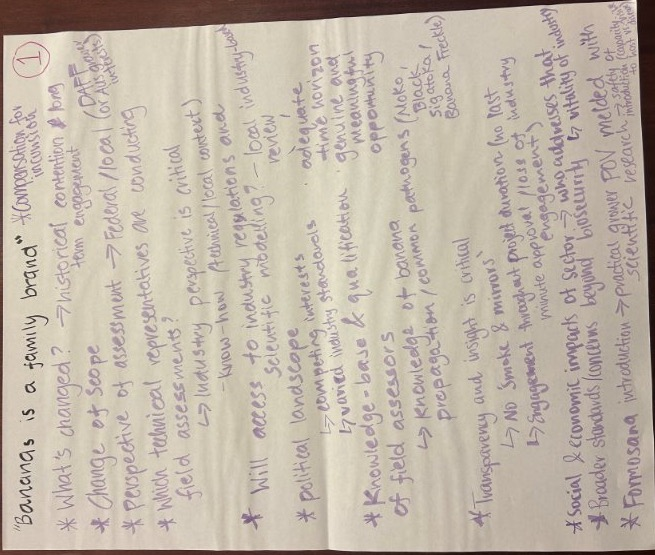 ①
"Bananas is a family brand" *Compensation for
incursion
* What's changed? → historical contention & long
term engagement
* Change of scope
* Perspective of assessment → Federal/local (DAFF
or Aus
* Which technical representatives are conducting
field assessments?
↳ Industry perspective is critical
- Know-how (technical/local context)
* Will access to industry regulations and
scientific modelling? – local industry-based
review
* political landscape
↳ competing interests
↳ varied industry standards
· adequate
time horizon
· genuine and
meaningful
opportunity
* Knowledge-base & qualification
of field assessors
↳ Knowledge of banana
propagation/common pathogens (Moko,
Black
Sigatoka,
Banana Freckle)
* Transparency and insight is critical
↳ No smoke & mirrors
↳ Engagement throughout project duration (no last
minute approval/loss of industry
engagement)
* Social & economic impacts of sector → who addresses that
↳ vitality of industry
* Broader standards/concerns beyond biosecurity
* Formosana introduction → practical grower POV melded with
scientific research → safety of
introduction (capacity
to host